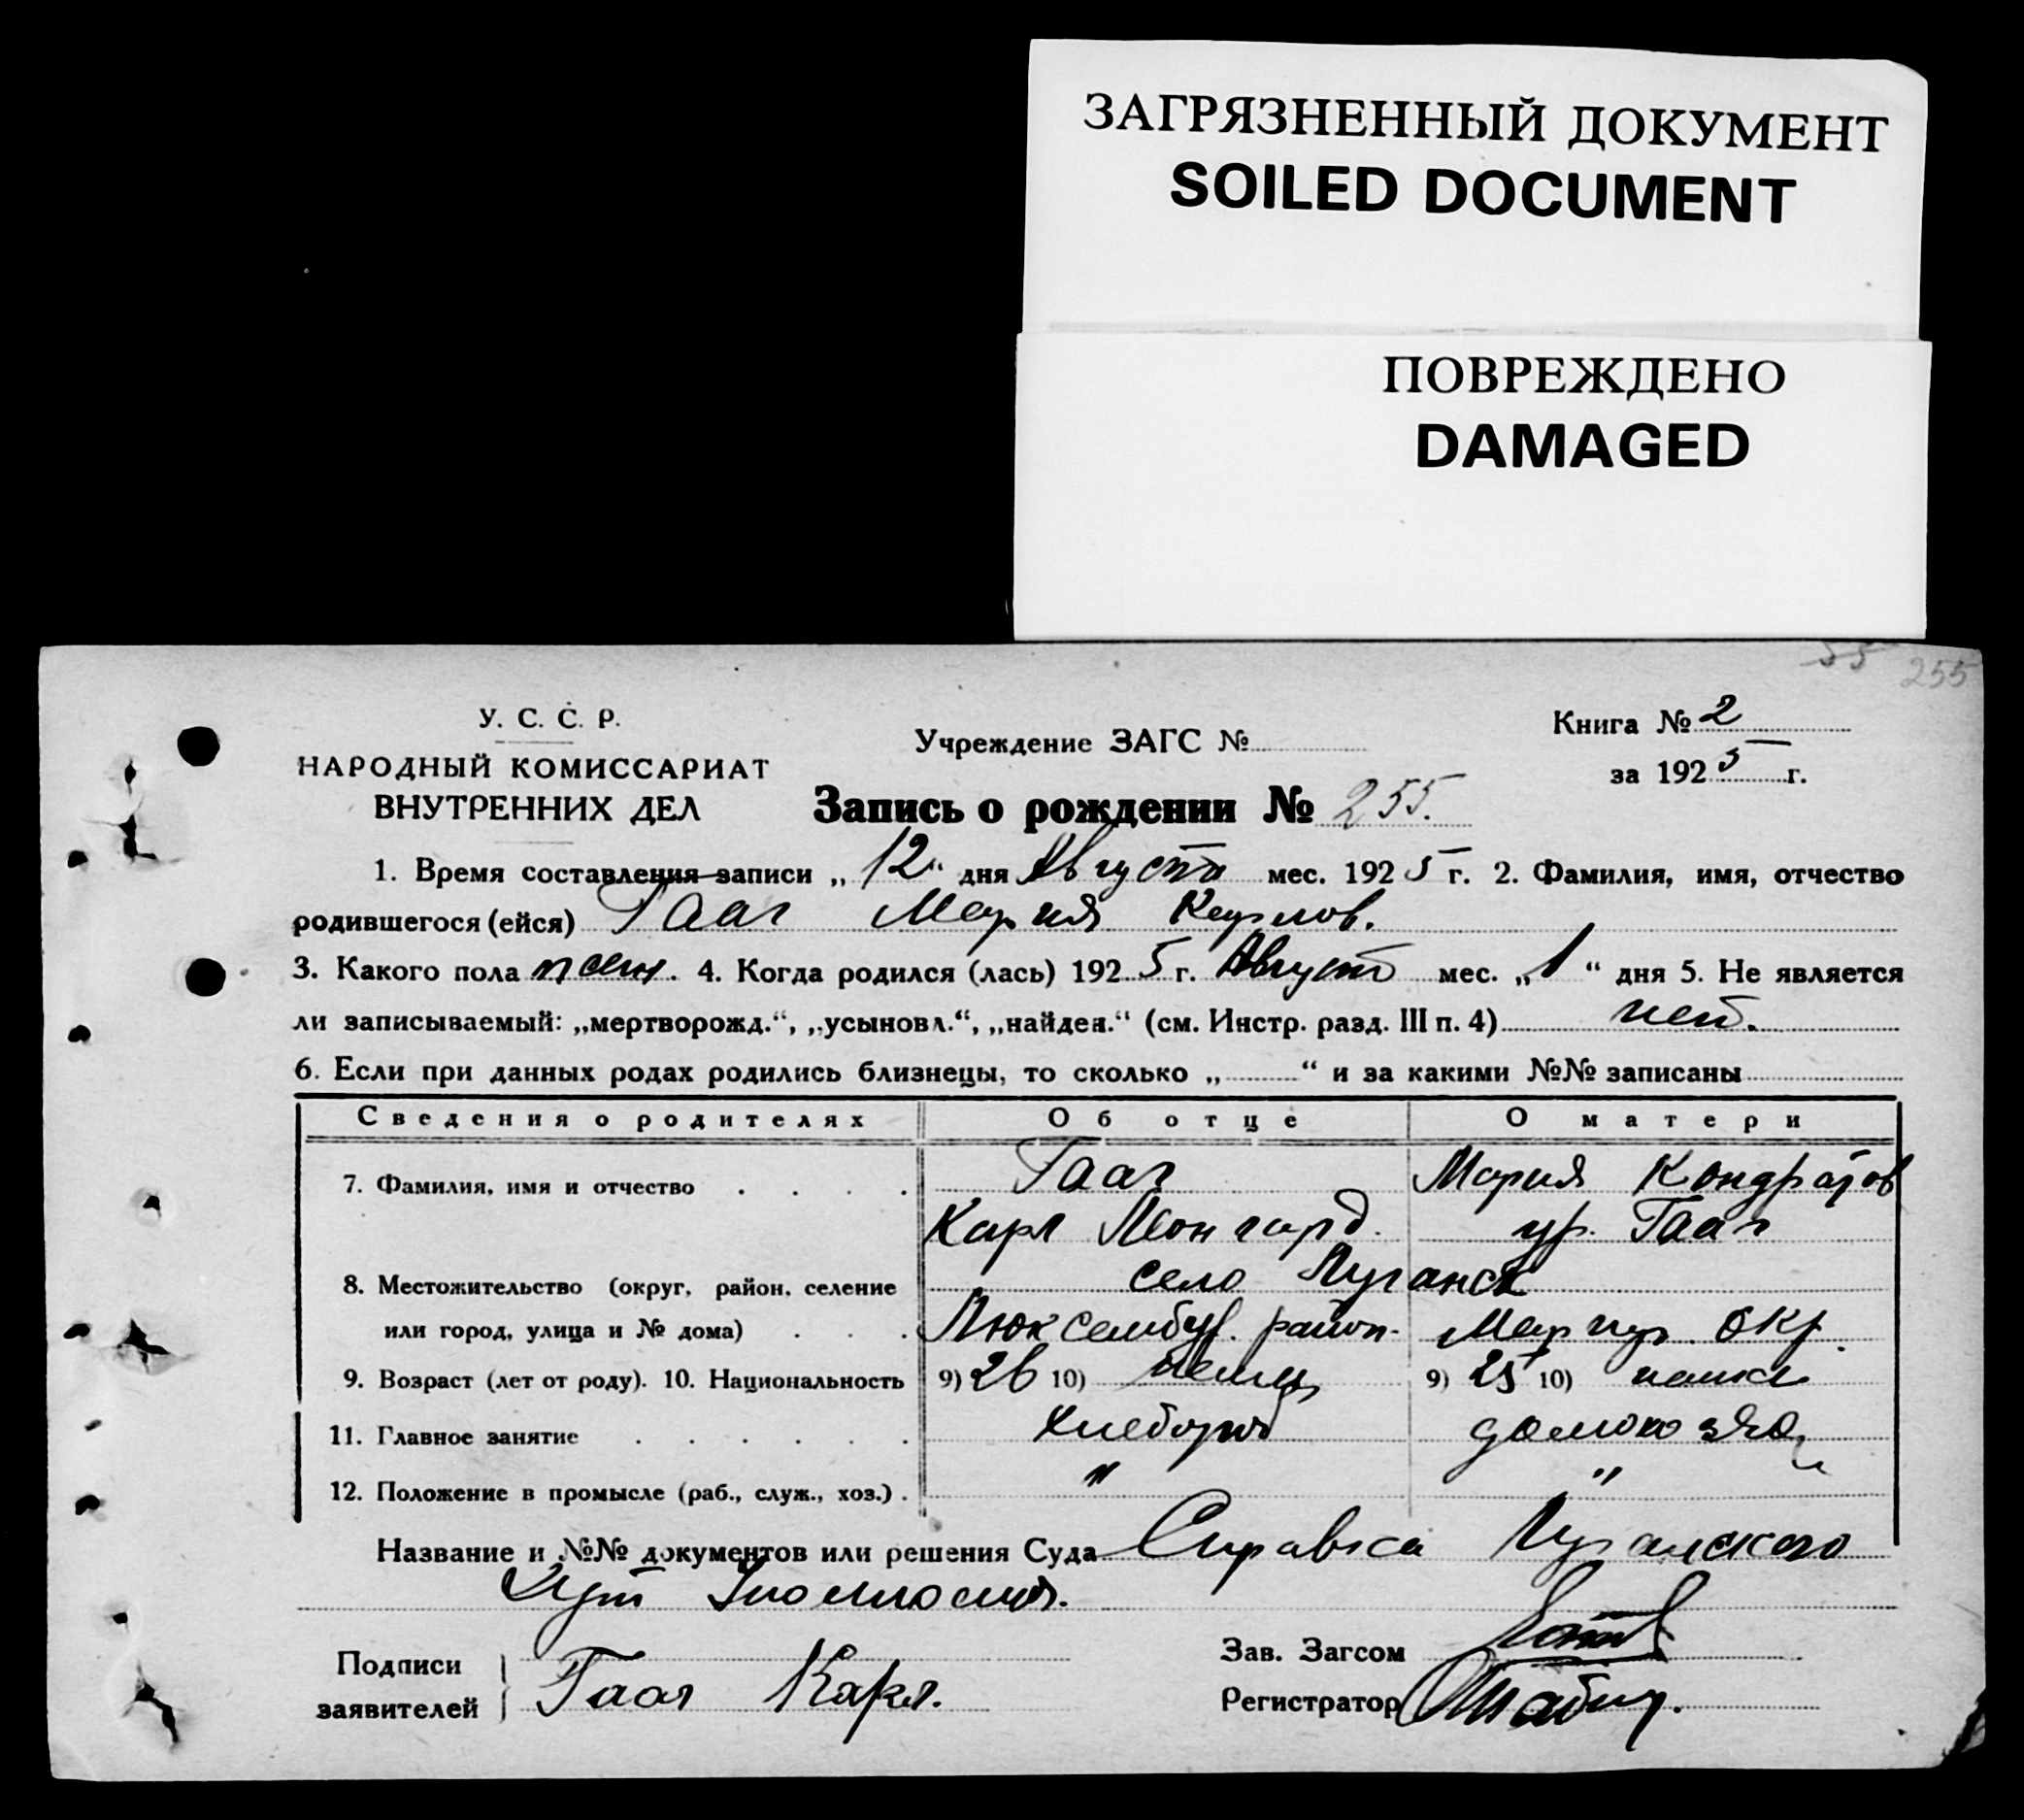 ЗАГРЯЗНЕННЫЙ ДОКУМЕНТ
SOILED DOCUMENT
ПОВРЕЖДЕНО
DAMAGED
55 255
У. С. С. Р.
НАРОДНЫЙ КОМИССАРИАТ
ВНУТРЕННИХ ДЕЛ
Учреждение ЗАГС №
Книга № 2
за 1925 г.
Запись о рождении № 255.
1. Время составления записи „12“ дня Августа мес. 1925 г. 2. Фамилия, имя, отчество
родившегося (ейся) Гааг Мария Карлов.
3. Какого пола жен. 4. Когда родился (лась) 1925 г. Август мес. „1“ дня 5. Не является
ли записываемый: „мертворожд.“, „усыновл.“, „найден.“ (см. Инстр. разд. III п. 4) нет.
6. Если при данных родах родились близнецы, то сколько „ “ и за какими №№ записаны
Сведения о родителях Об отце О матери
7. Фамилия, имя и отчество . . . . Гааг Мария Кондратов
Карл Леонгард. ур. Гааг
8. Местожительство (округ, район, селение село Луганск
или город, улица и № дома) . . . Люксембур. район. Мариуп. окр.
9. Возраст (лет от роду). 10. Национальность 9) 26 10) немец 9) 25 10) немка
11. Главное занятие . . . . . . Хлебороб домохоз
12. Положение в промысле (раб., служ., хоз.) . " "
Название и №№ документов или решения Суда Справка Луганского
Подписи
заявителей } Гааг Карл.
Зав. Загсом
Регистратор